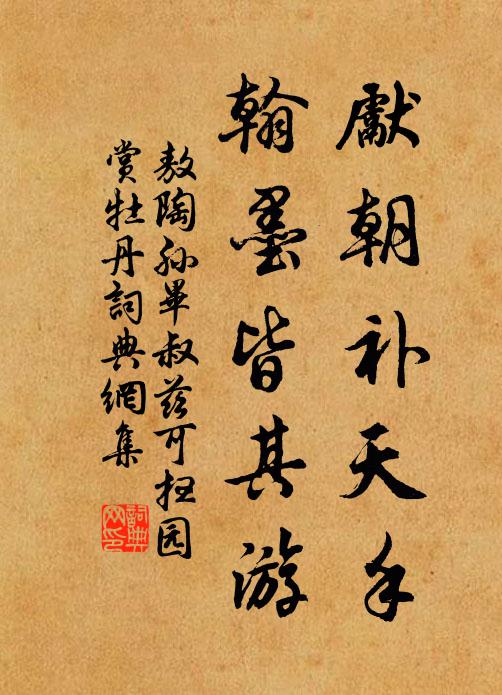 獻朝补天手
翰墨皆其游
敖陶孙畢叔兹可抂园
赏牡丹詞典網集
詞典网印